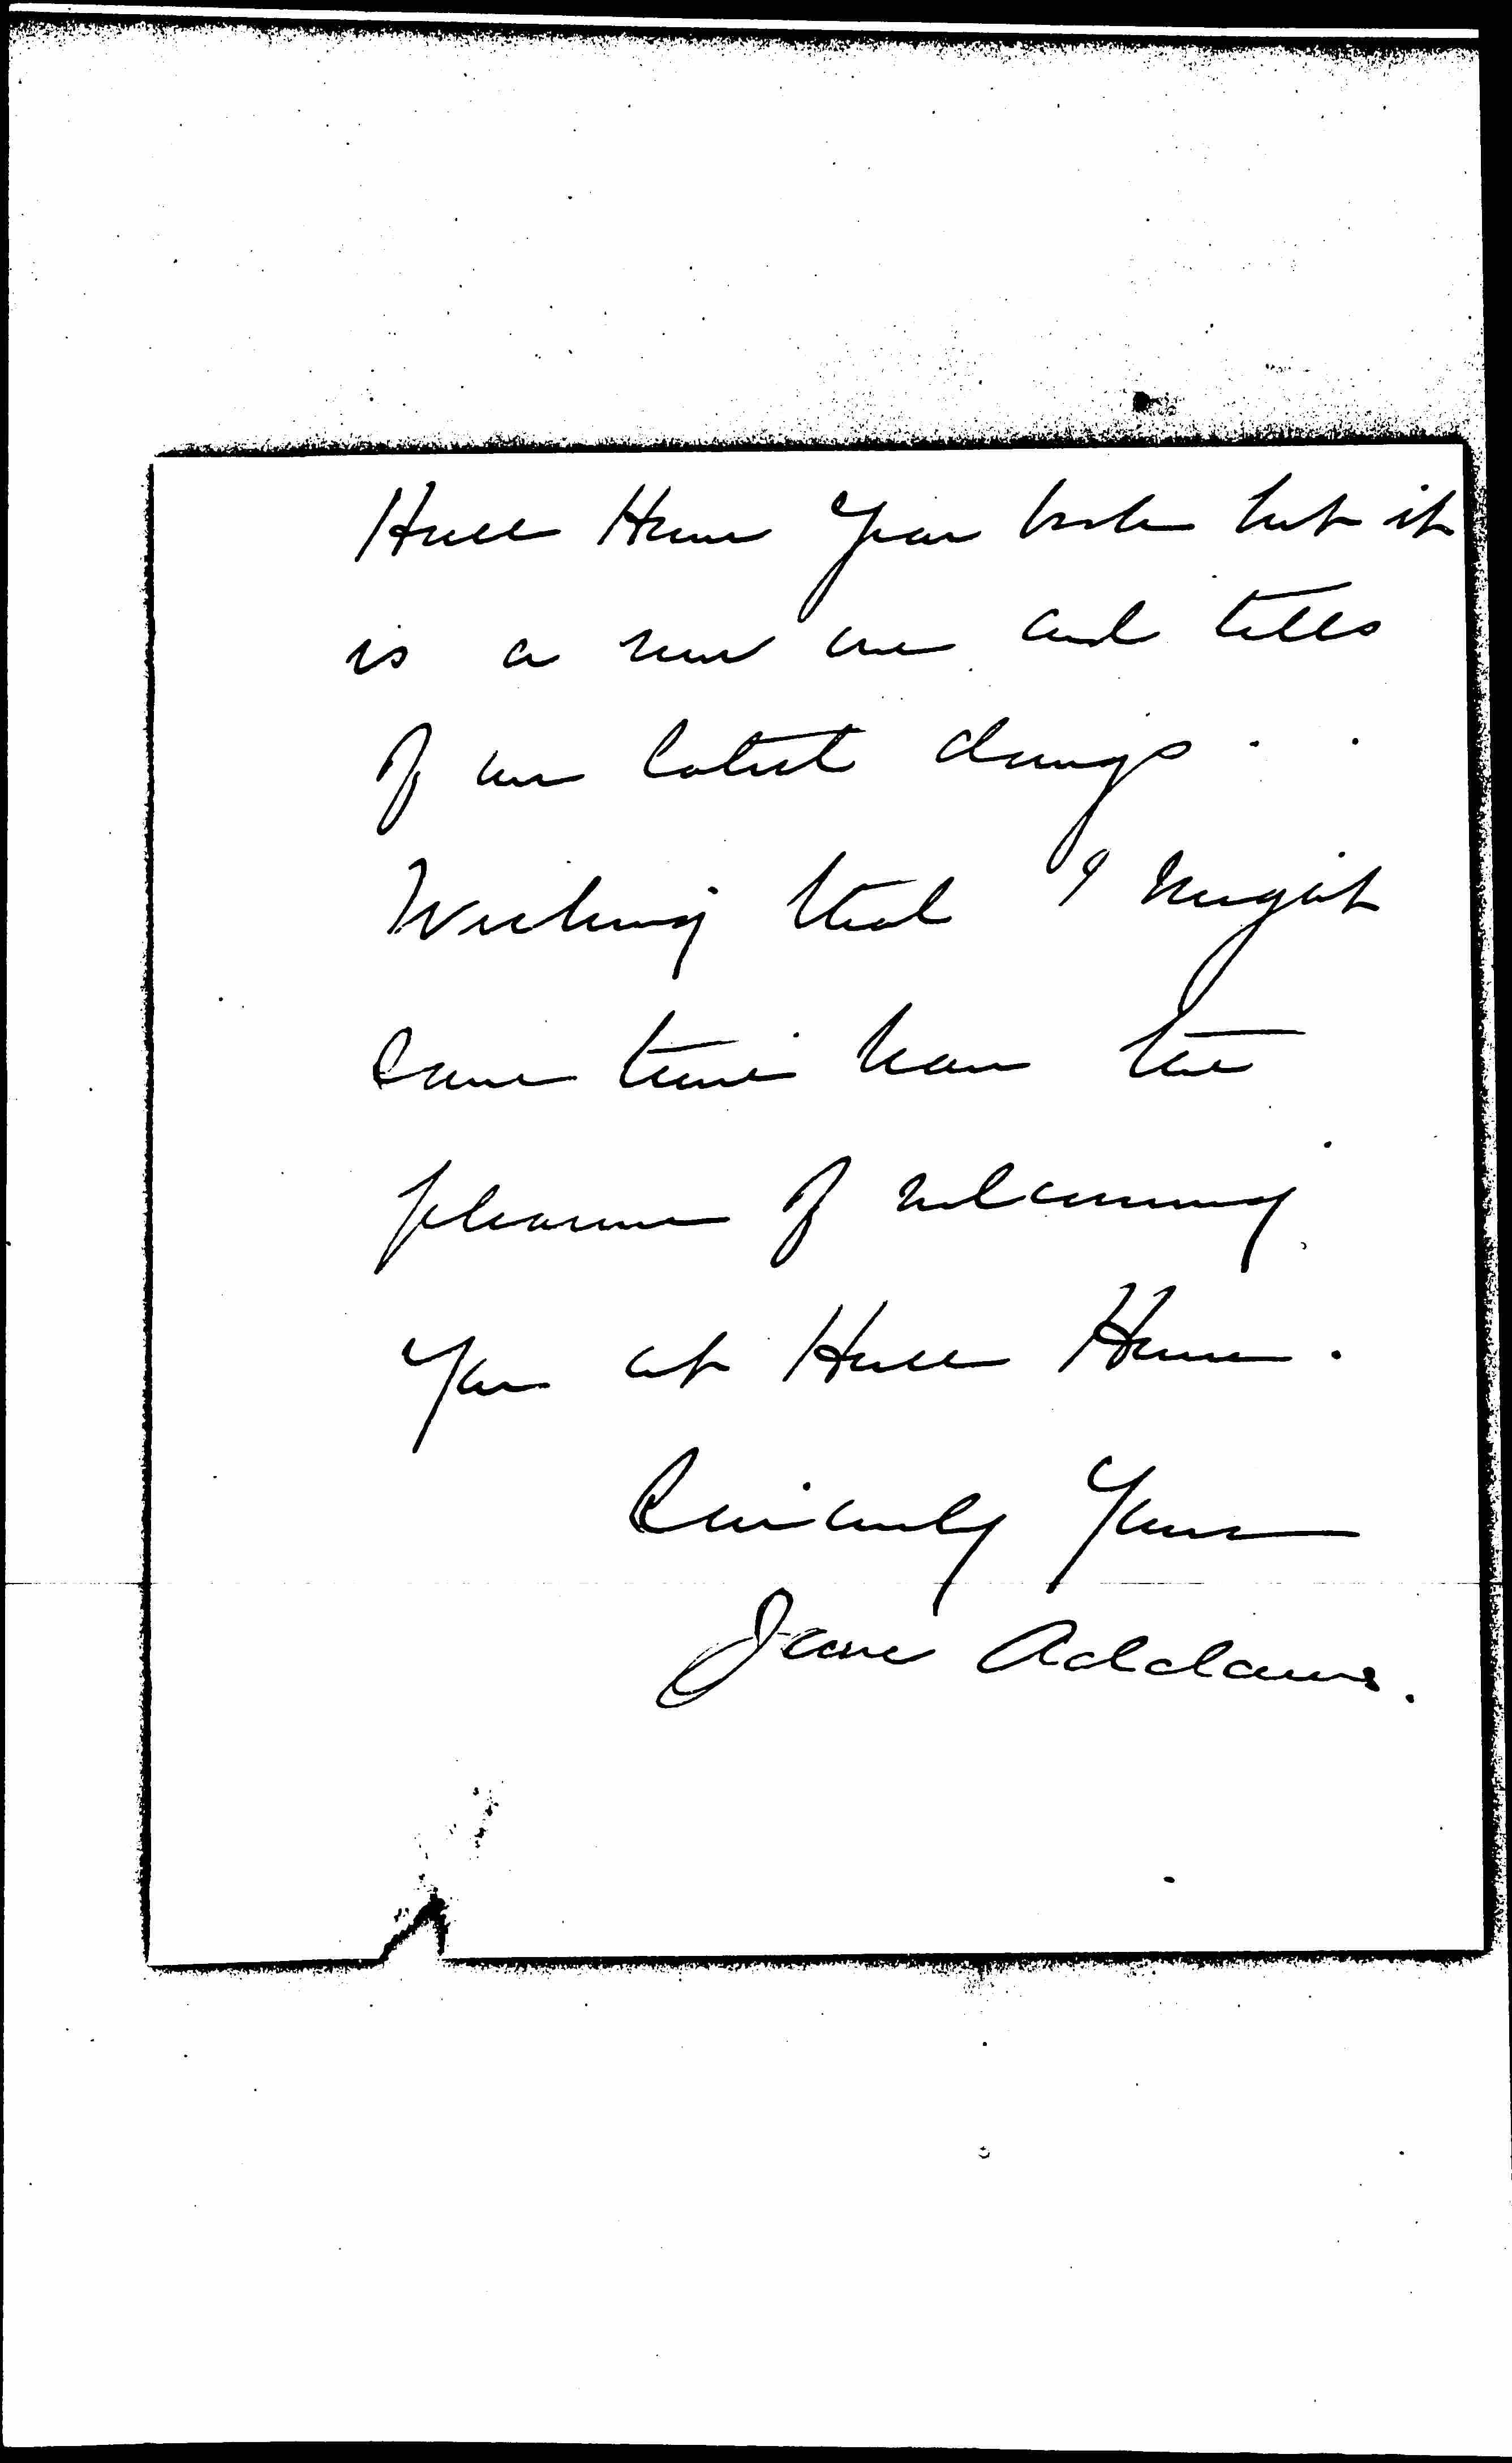 Hull House Year book but it
is a new one and tells
of our latest doings.
Wishing that I might
some time have the
pleasure of welcoming
you at Hull House.
Sincerely Yours
Jane Addams.